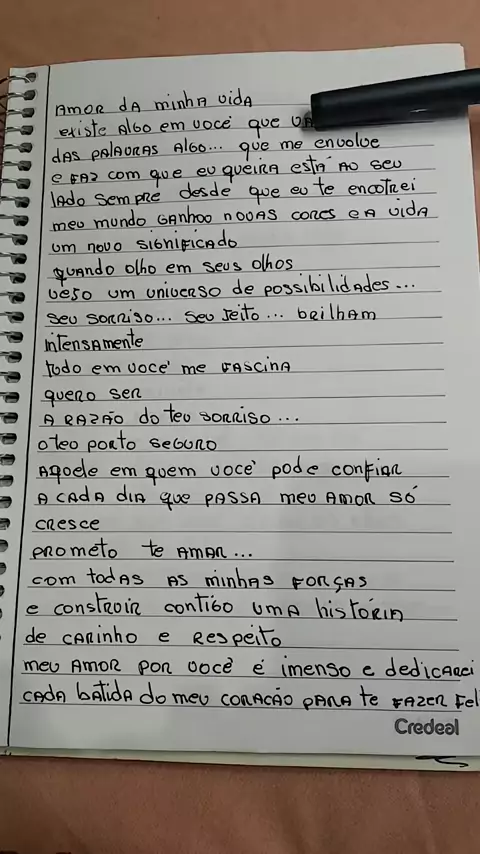 Amor da minha vida
existe Algo em você que
das palavras Algo... que me envolve
e faz com que eu queira está ao seu
lado sempre desde que eu te encotrei
meu mundo ganhou novas cores e a vida
um novo significado
quando olho em seus olhos
veso um universo de possibilidades...
seu sorriso... seu jeito... brilham
intensamente
todo em você me fascina
quero ser
A razão do teu sorriso...
o teu porto seguro
Aquele em quem você pode confiar
A cada dia que passa meu amor só
cresce
prometo te amar...
com todas as minhas forças
e constroir contigo uma história
de carinho e respeito
meu amor por você é imenso e dedicarei
cada batida do meu coracão para te fazer fel
Credeal